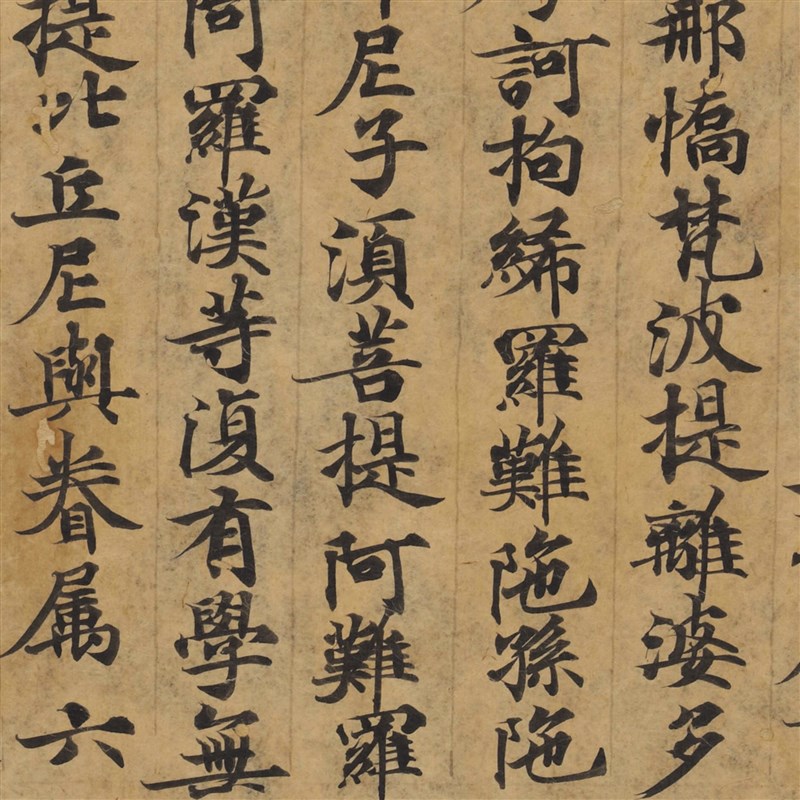 那憍梵波提離婆多
訶拘絺羅難陁孫陁
尼子湏菩提阿難羅
羅漢等復有學無
提比丘尼與眷属六